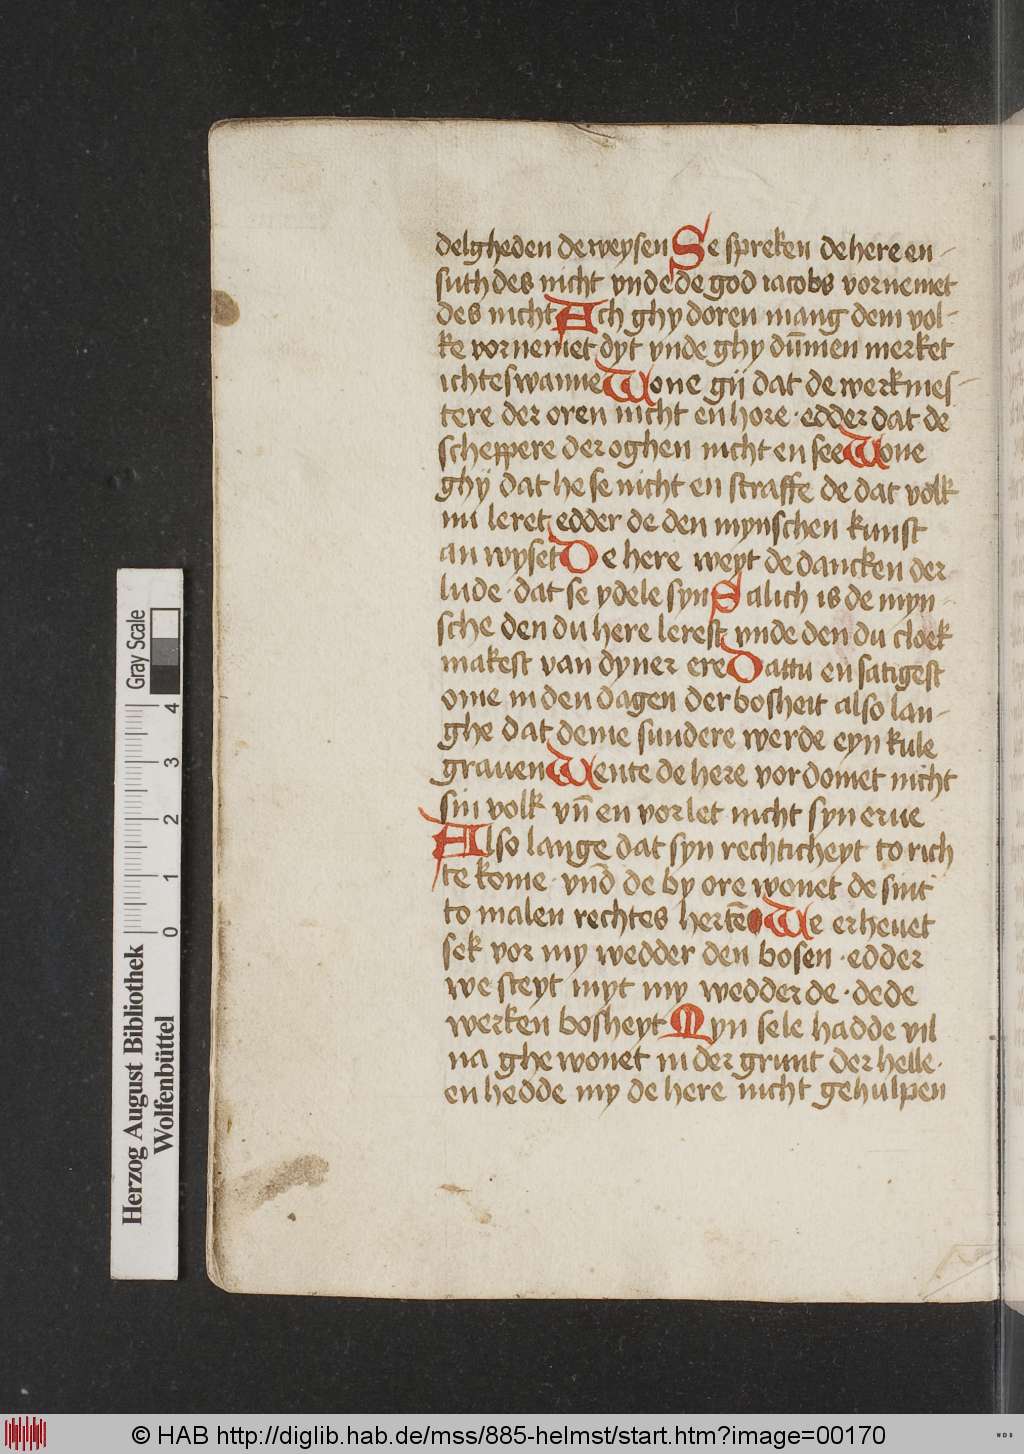 delgheden de weysen Se spreken de here en-
suth des nicht vnde de god iacobs vornemet
des nicht Ach ghy doren mang dem vol-
ke vornemet dyt vnde ghy dūmen merket
ichteswanne Wone gij dat de werkmes-
tere der oren nicht en hore · edder dat de
scheppere der oghen nicht en see Wone
ghÿ dat he se nicht en straffe de dat volk
nu leret edder de den mynschen kunst
an wyset De here weyt de dancken der
lude · dat se ydele syn Salich is de myn-
sche den du here lerest vnde den du cloek
makest van dyner ere Dattu en satigest
ome in den dagen der bosheit also lan-
ghe dat deme sundere werde eyn kule
grauen Wente de here vordomet nicht
sin volk vn̄ en vorlet nicht syn erue
Also lange dat syn rechticheyt to rich
te kome · vnd̄ de by ore wonet de sint
to malen rechtes hertē We erheuet
sek vor my wedder den bosen · edder
we steyt myt my wedder de · de de
werken bosheyt Myn sele hadde vil
na ghewonet in der grunt der helle ·
en hedde my de here nicht gehulpen
Gray Scale
0 1 2 3 4
Herzog August Bibliothek
Wolfenbüttel
© HAB http://diglib.hab.de/mss/885-helmst/start.htm?image=00170